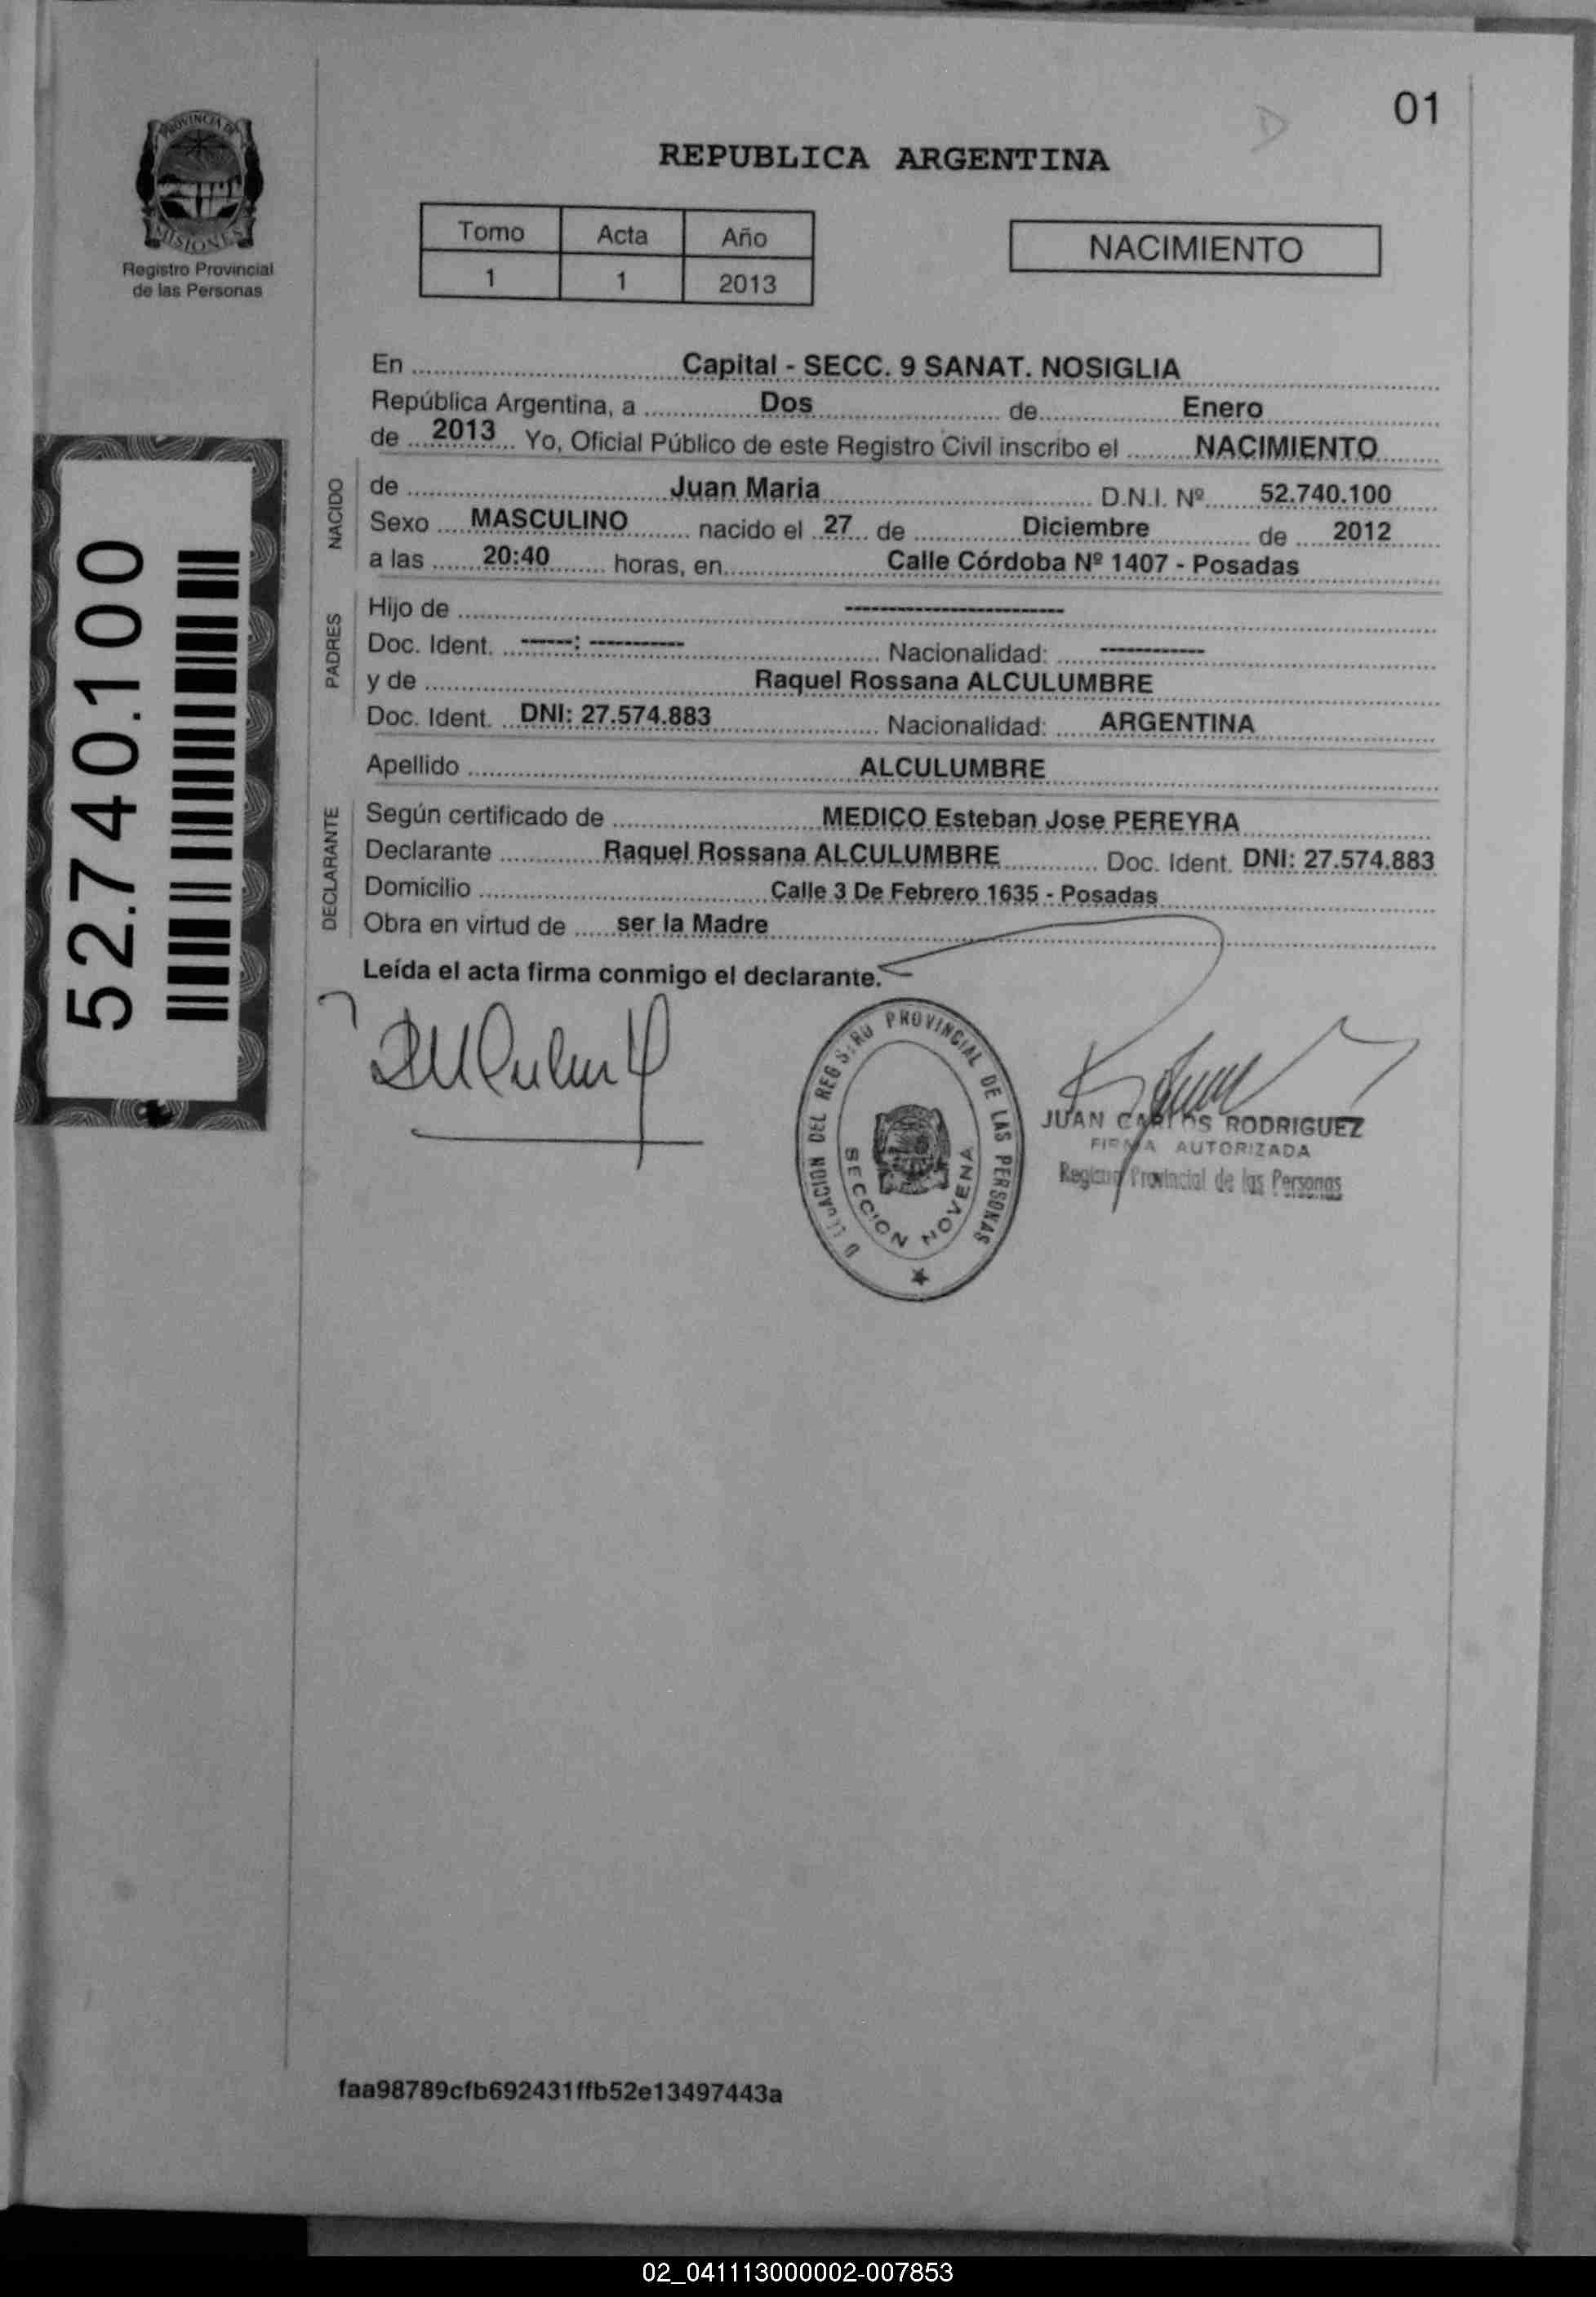 01
PROVINCIA DE
MISIONES
Registro Provincial
de las Personas
REPUBLICA ARGENTINA
Tomo Acta Año
1 1 2013
NACIMIENTO
En Capital - SECC. 9 SANAT. NOSIGLIA
República Argentina, a Dos de Enero
de 2013 Yo, Oficial Público de este Registro Civil inscribo el NACIMIENTO
NACIDO
de Juan Maria D.N.I. Nº 52.740.100
Sexo MASCULINO nacido el 27 de Diciembre de 2012
a las 20:40 horas, en Calle Córdoba Nº 1407 - Posadas
PADRES
Hijo de -----------------------
Doc. Ident. ------: ---------- Nacionalidad: -----------
y de Raquel Rossana ALCULUMBRE
Doc. Ident. DNI: 27.574.883 Nacionalidad: ARGENTINA
Apellido ALCULUMBRE
DECLARANTE
Según certificado de MEDICO Esteban Jose PEREYRA
Declarante Raquel Rossana ALCULUMBRE Doc. Ident. DNI: 27.574.883
Domicilio Calle 3 De Febrero 1635 - Posadas
Obra en virtud de ser la Madre
Leída el acta firma conmigo el declarante.
52.740.100
DEL REGISTRO PROVINCIAL DE LAS PERSONAS
SECCION NOVENA
JUAN CARLOS RODRIGUEZ
FIRMA AUTORIZADA
Registro Provincial de las Personas
faa98789cfb692431ffb52e13497443a
02_041113000002-007853